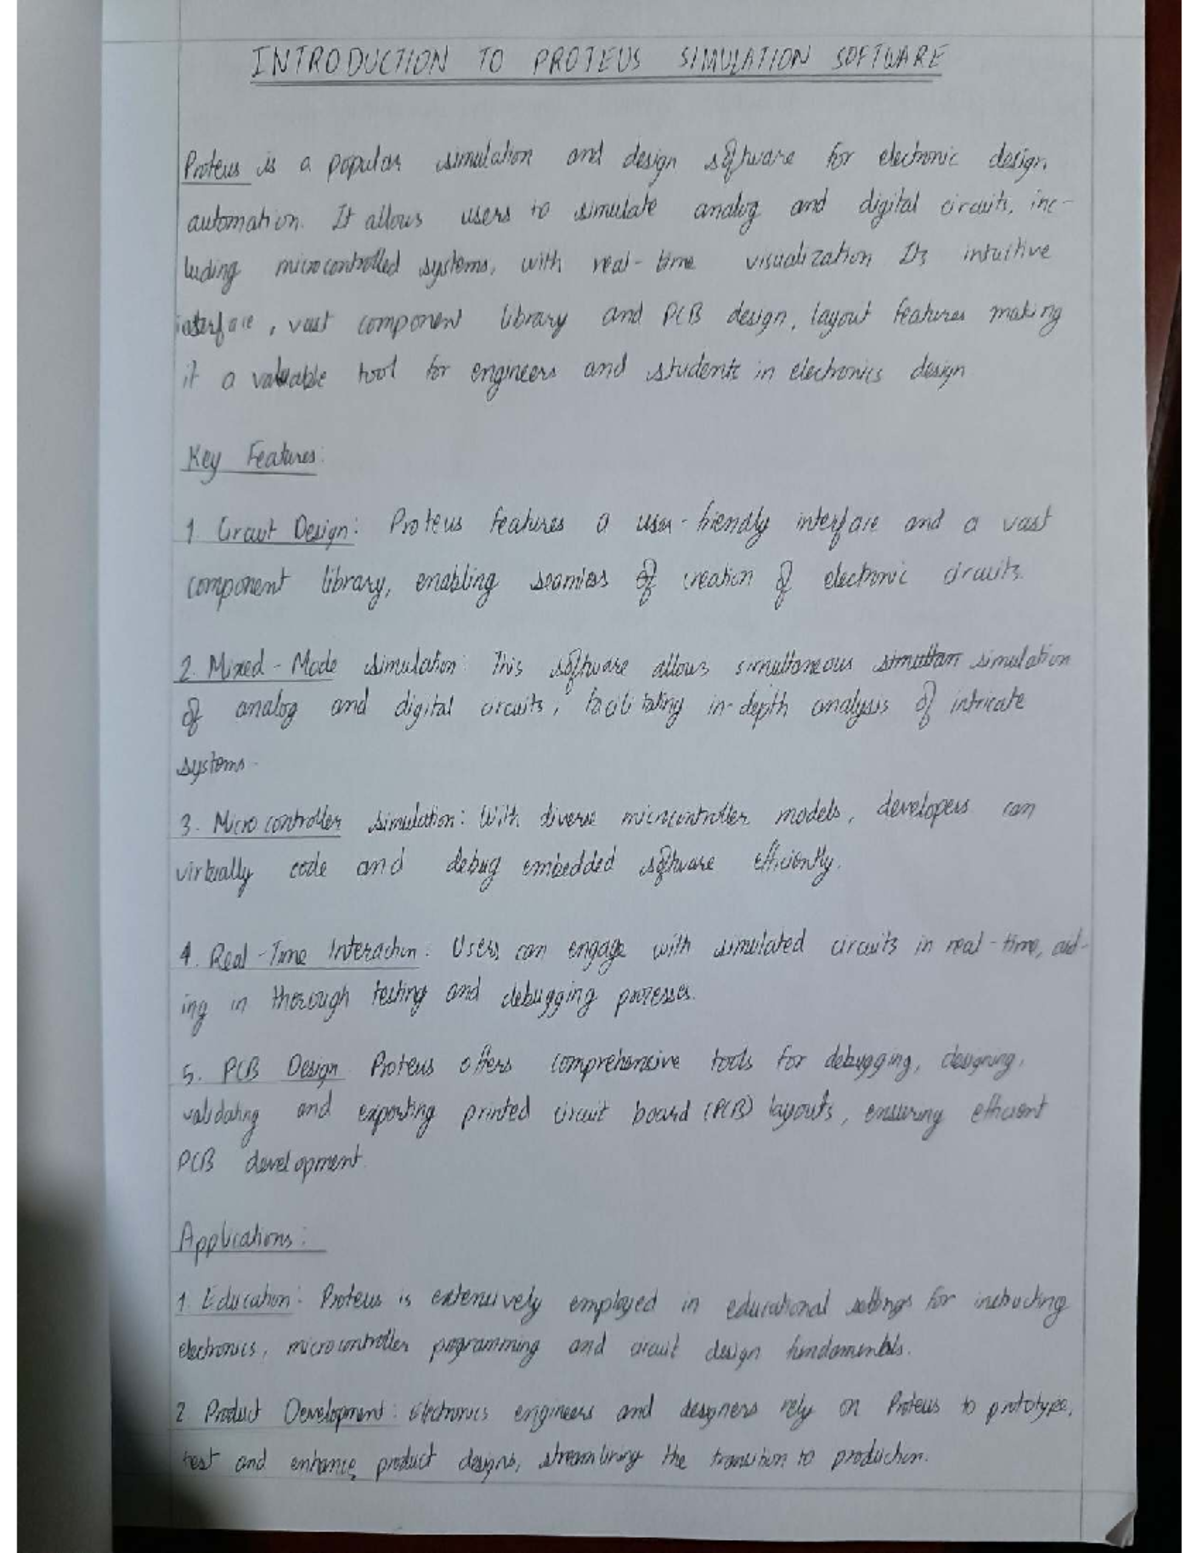 INTRODUCTION TO PROTEUS SIMULATION SOFTWARE
Proteus is a popular simulation and design software for electronic design
automation. It allows users to simulate analog and digital circuits, inc-
luding microcontrolled systems, with real-time visualization Its intuitive
interface, vast component library and PCB design, layout features making
it a valuable tool for engineers and students in electronics design
Key Features:
1. Circuit Design: Proteus features a user-friendly interface and a vast
component library, enabling seamless of creation of electronic circuits.
2. Mixed-Mode simulation: This software allows simultaneous simultan simulation
of analog and digital circuits, facilitating in-depth analysis of intricate
systems.
3. Microcontroller simulation: With diverse microcontroller models, developers can
virtually code and debug embedded software efficiently.
4. Real-Time Interaction: Users can engage with simulated circuits in real-time, aid-
ing in thorough testing and debugging processes.
5. PCB Design Proteus offers comprehensive tools for debugging, designing,
validating and exporting printed circuit board (PCB) layouts, ensuring efficient
PCB development
Applications:
1. Education: Proteus is extensively employed in educational settings for instructing
electronics, microcontroller programming and circuit design fundamentals.
2 Product Development: Electronics engineers and designers rely on Proteus to prototype,
test and enhance product designs, streamlining the transition to production.